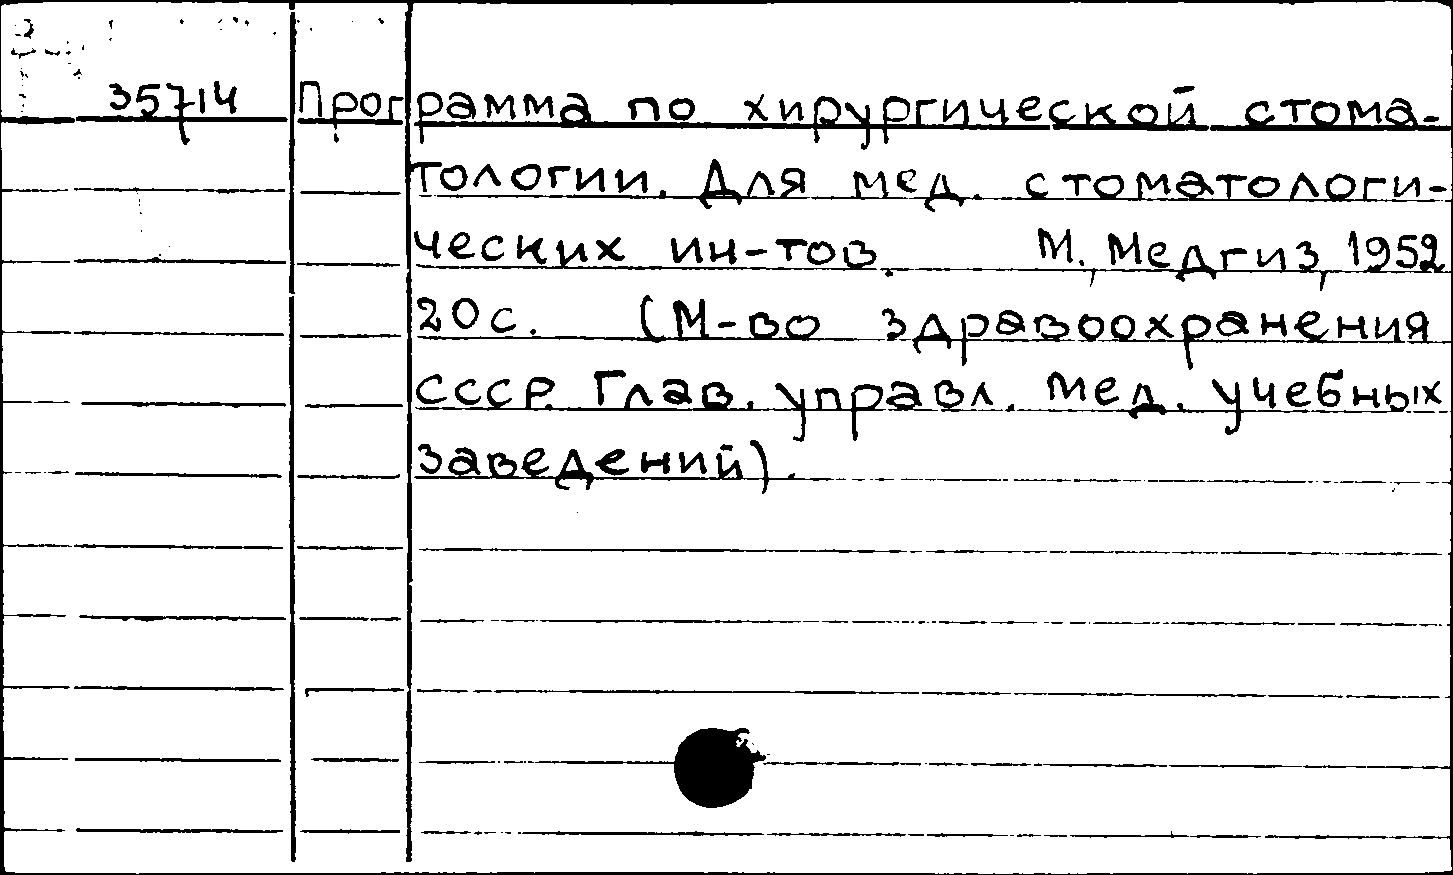 35714 Программа по хирургической стома-
тологии. Для мед. стоматологи-
ческих ин-тов. М., Медгиз, 1952
20с. (М-во здравоохранения
СССР. Глав. управл. мед. учебных
заведений).